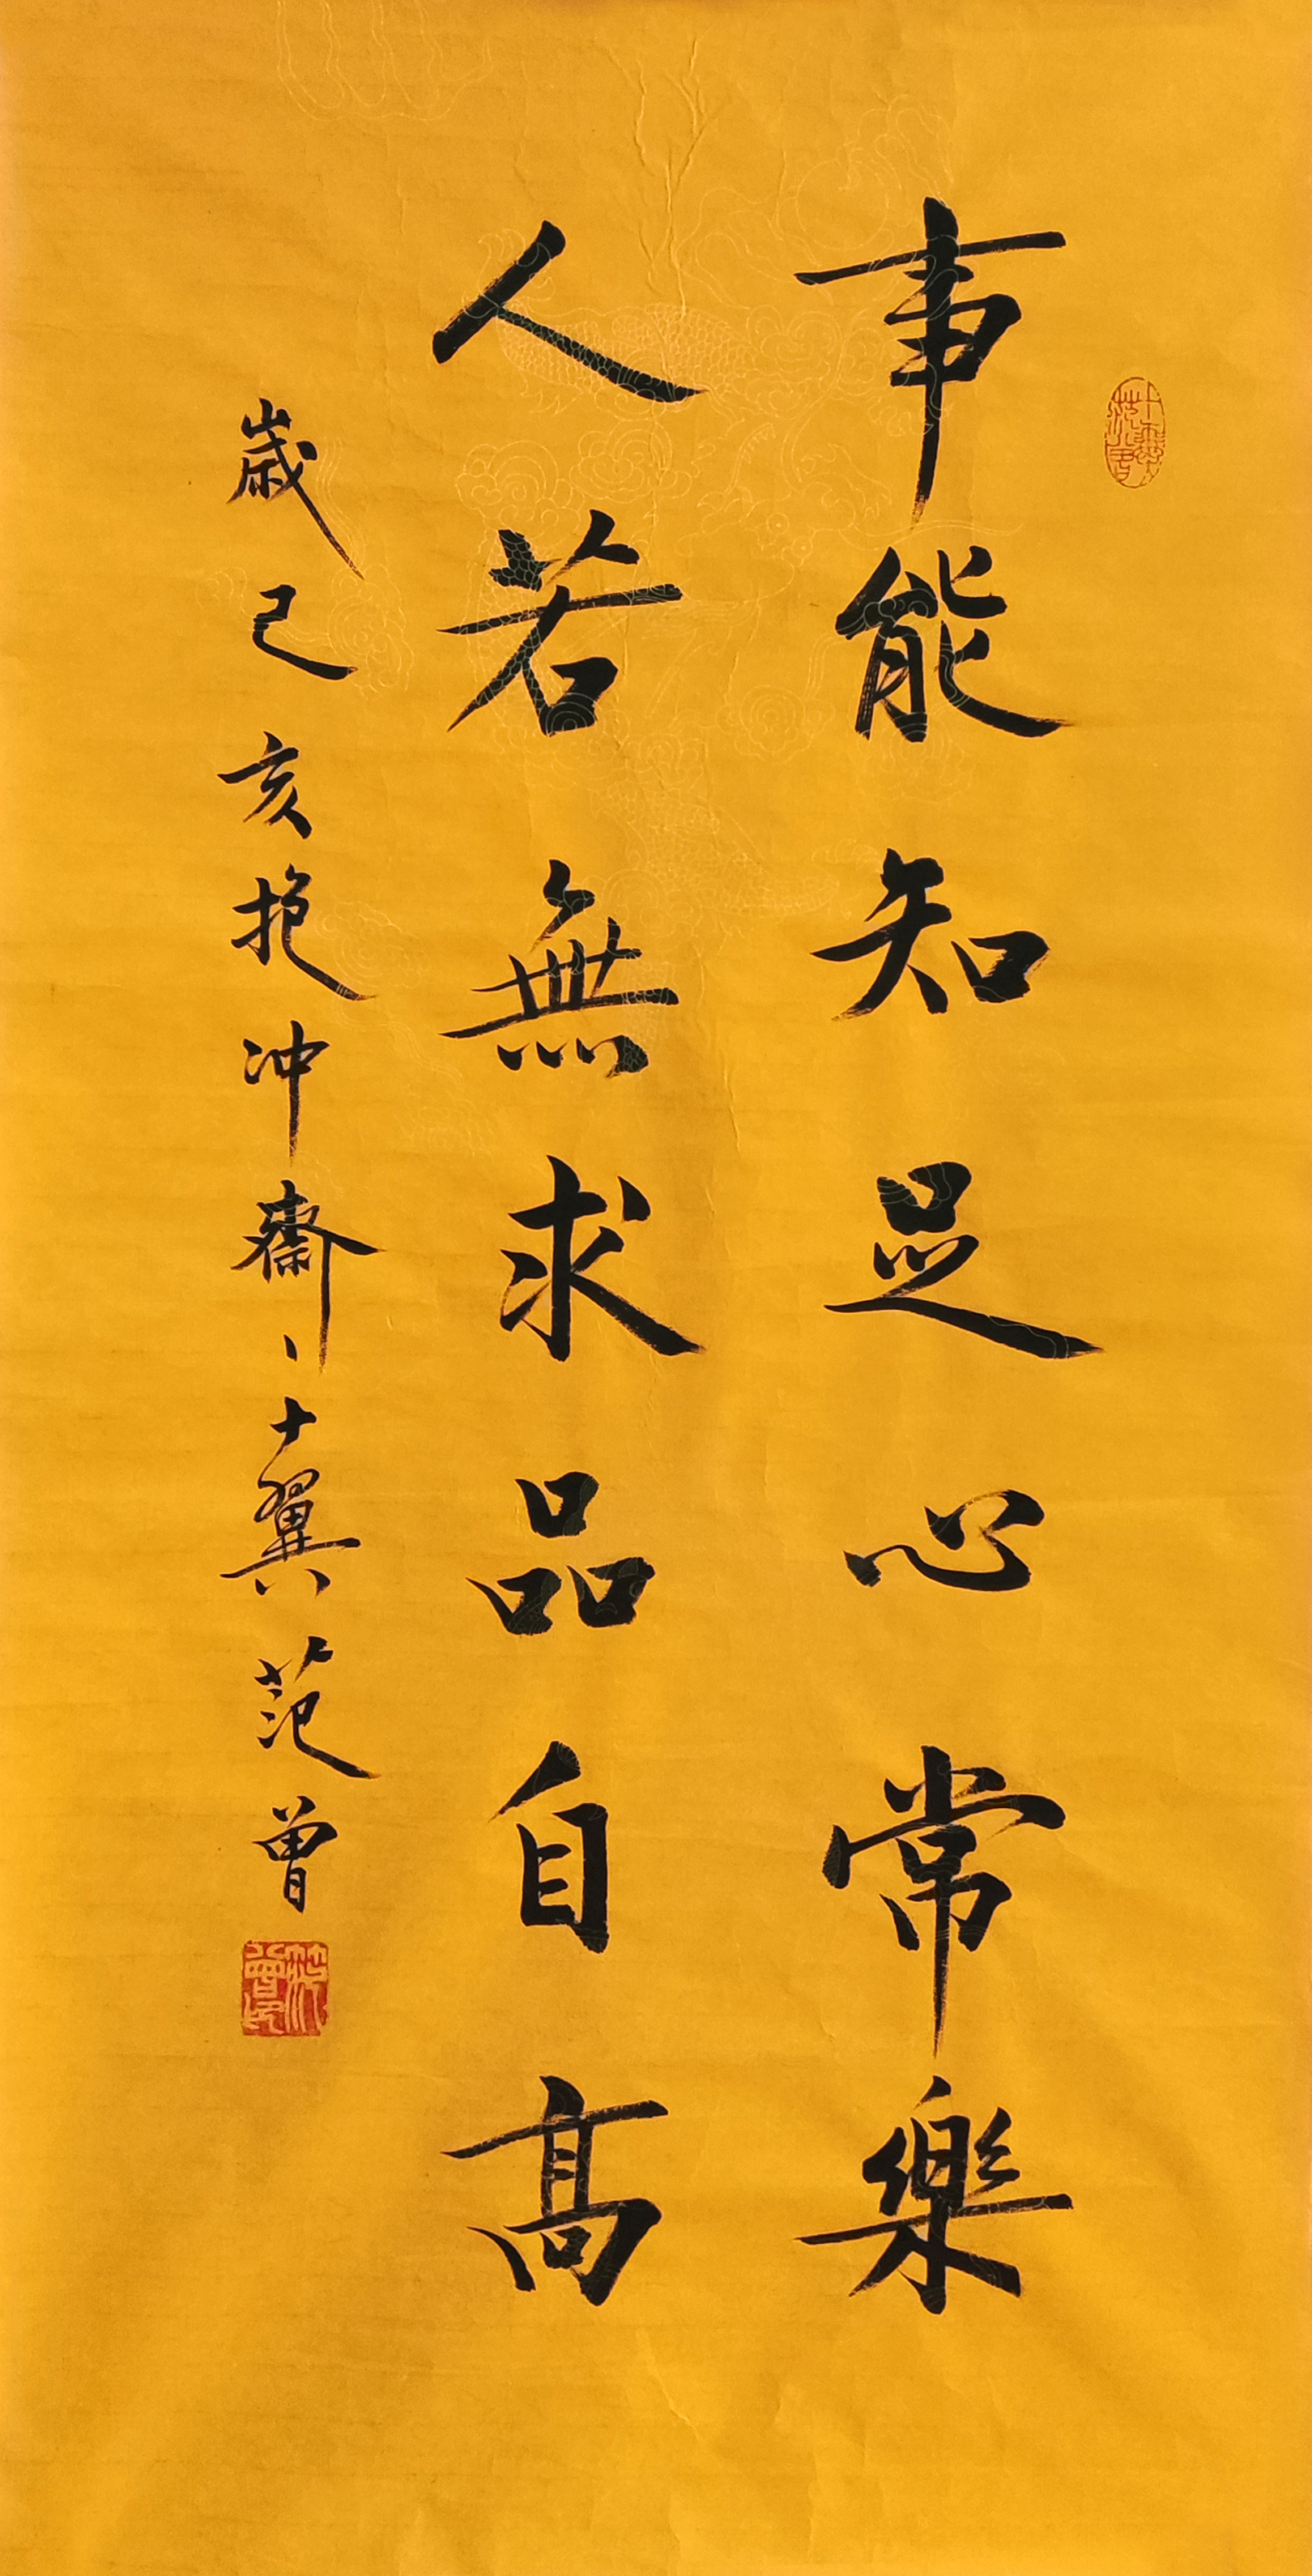 事能知足心常樂
人若無求品自高
歲己亥抱冲齋、十翼范曾